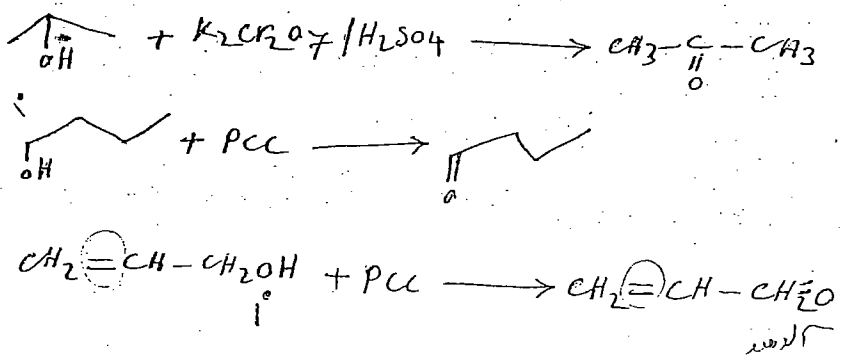 + K2Cr2O7/H2SO4 → CH3-C-CH3
OH
O
+ PCC →
OH
O
CH2=CH-CH2OH + PCC → CH2=CH-CH=O
آلدهید